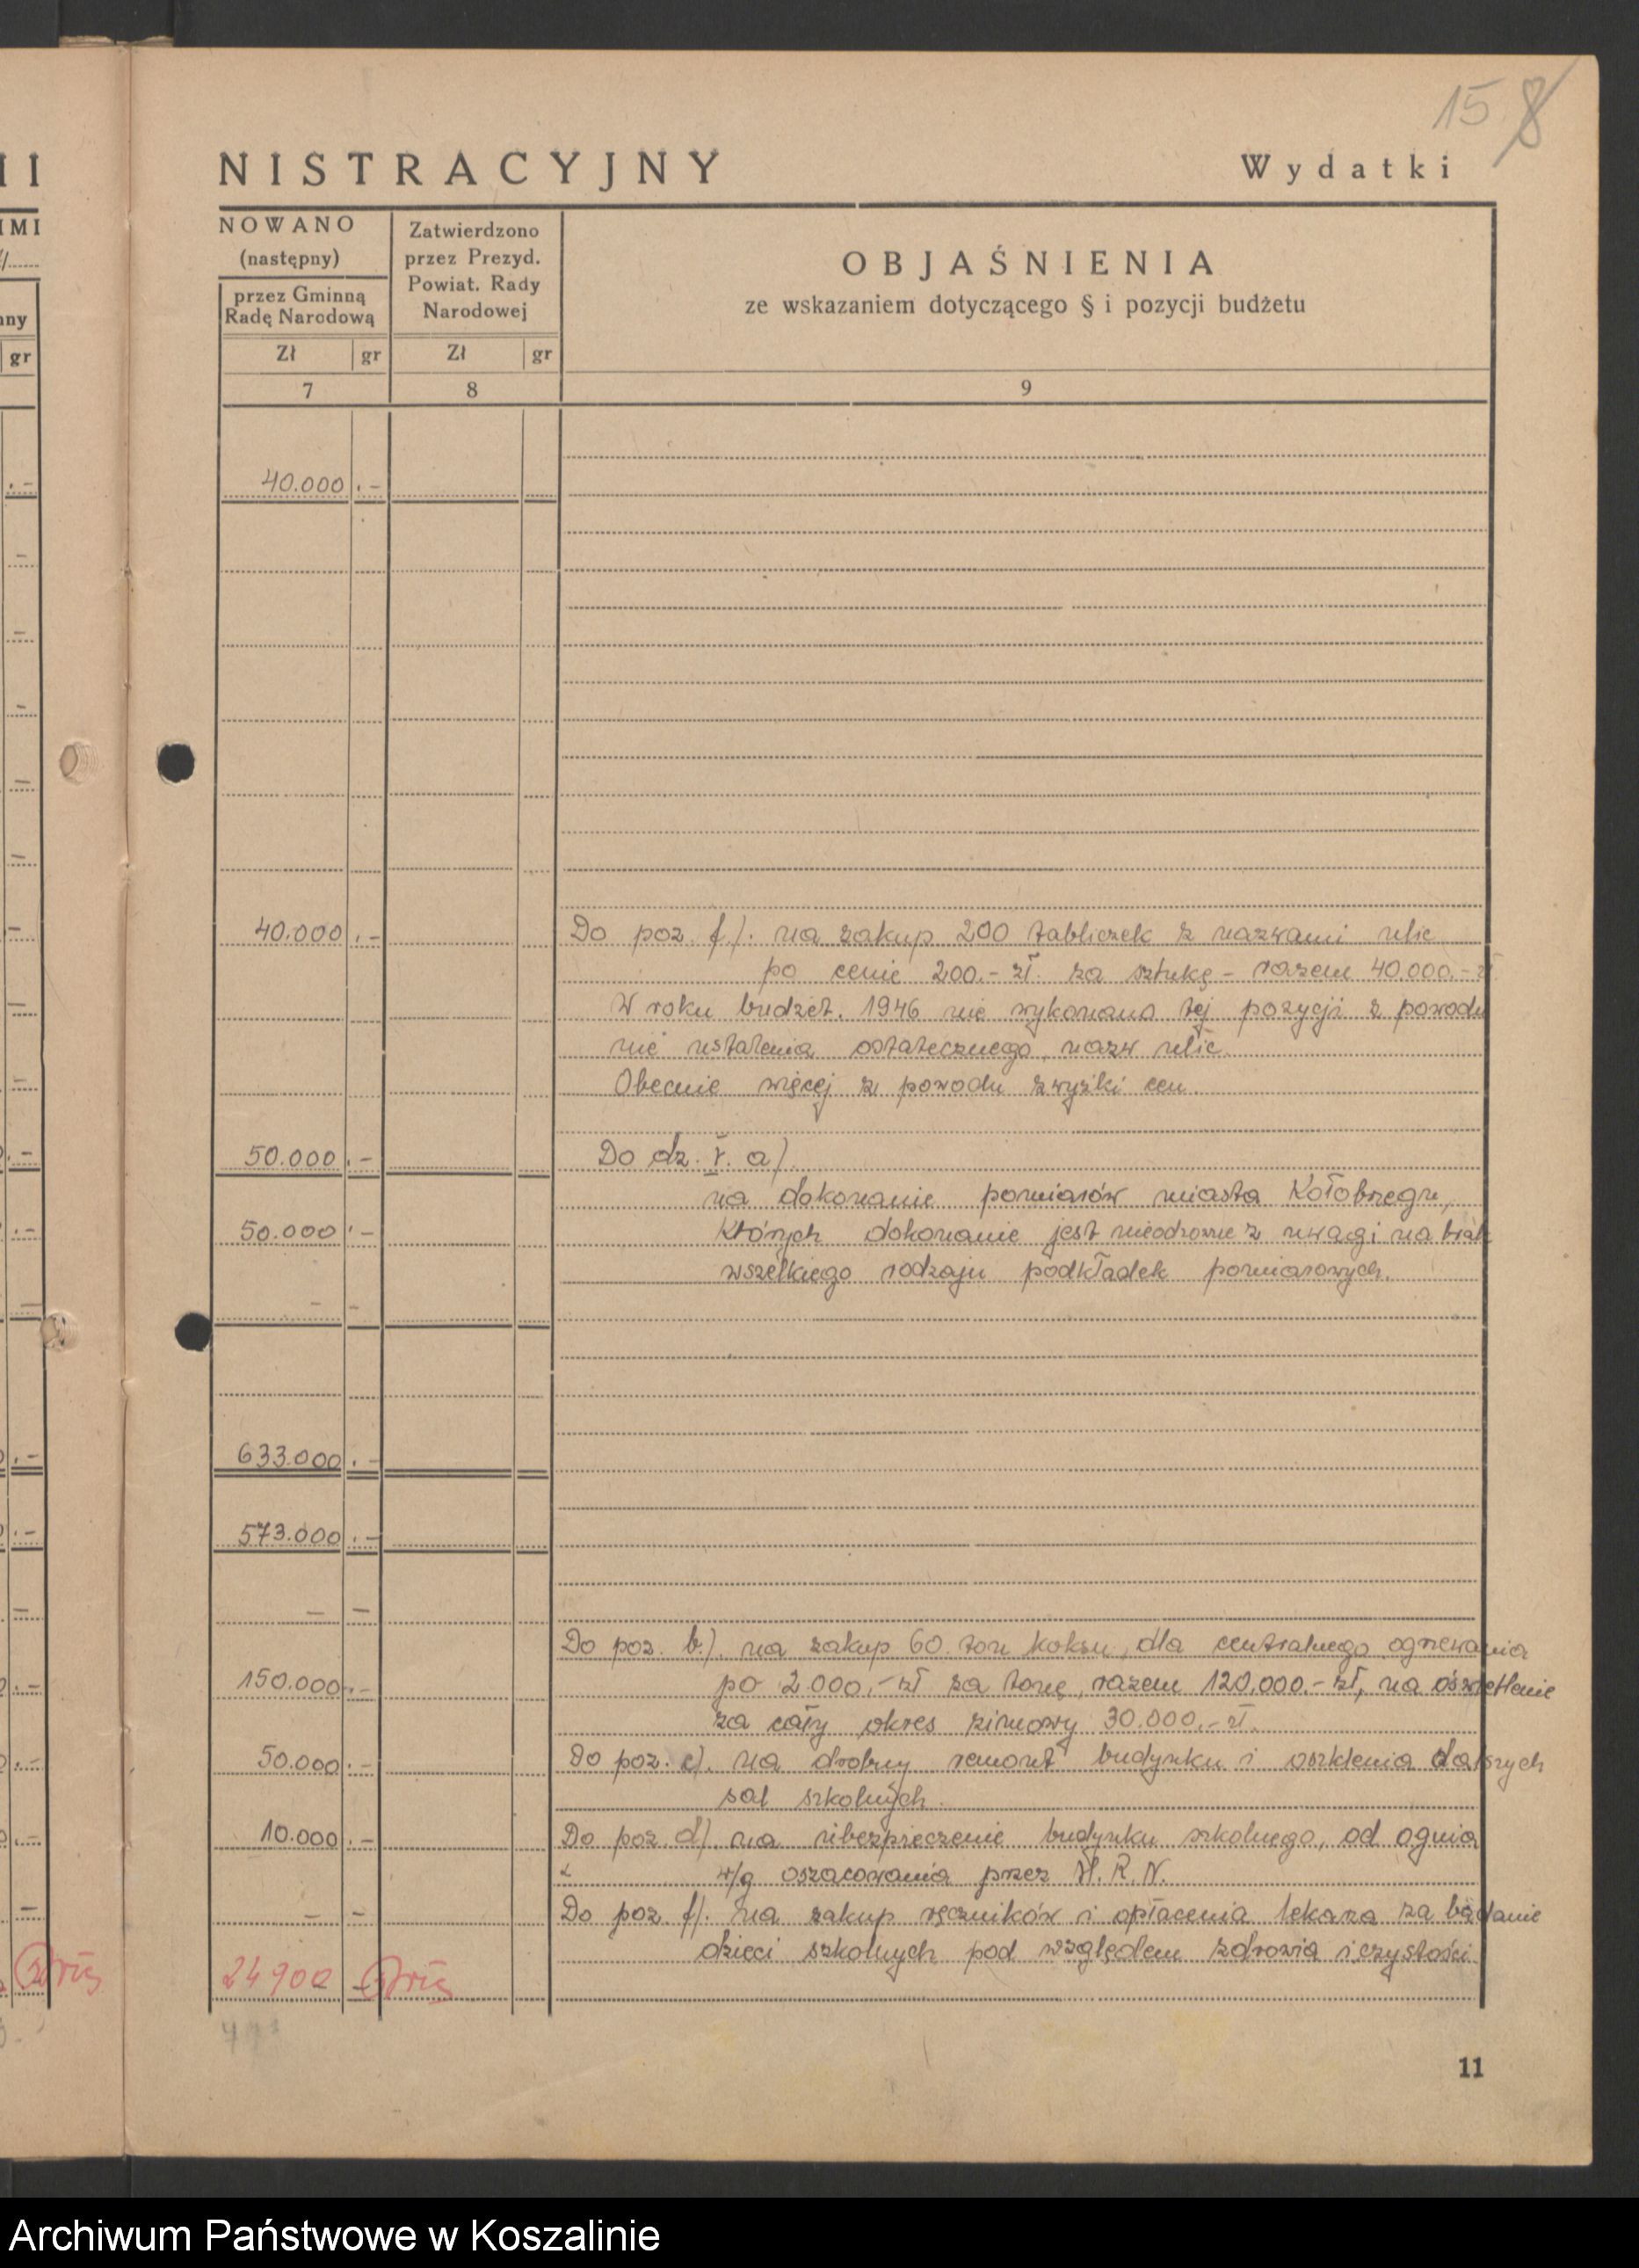 15 8
II
NISTRACYJNY
Wydatki
IMI
NOWANO
(następny)
przez Gminną
Radę Narodową
Zatwierdzono
przez Prezyd.
Powiat. Rady
Narodowej
OBJAŚNIENIA
ze wskazaniem dotyczącego § i pozycji budżetu
gr
Zł gr Zł gr
7 8 9
40.000 .-
40.000 .- Do poz. f.). na zakup 200 tabliczek z nazwami ulic
po cenie 200.- zł. za sztukę - razem 40.000.- zł
W roku budżet. 1946 nie wykonano tej pozycji z powodu
nie ustalenia ostatecznego nazw ulic.
Obecnie więcej z powodu zwyżki cen.
50.000 .- Do dz. V. a)
na dokonanie pomiarów miasta Kołobrzegu,
50.000 .- których dokonanie jest nieodzowne z uwagi na brak
wszelkiego rodzaju podkładek pomiarowych.
- -
633.000 .-
573.000 .-
- -
Do poz. b.). na zakup 60 ton koksu, dla centralnego ogrzewania
150.000 .- po 2.000,- zł za tonę, razem 120.000.- zł, na oświetlenie
za cały okres zimowy 30.000.- zł.
50.000 .- Do poz. c). na drobny remont budynku i oszklenia dalszych
sal szkolnych.
10.000 .- Do poz. d). na ubezpieczenie budynku szkolnego, od ognia
w/g oszacowania przez M.R.N.
- - Do poz. f). na zakup ręczników i opłacenia lekarza za badanie
dzieci szkolnych pod względem zdrowia i czystości
24900 -
11
Archiwum Państwowe w Koszalinie